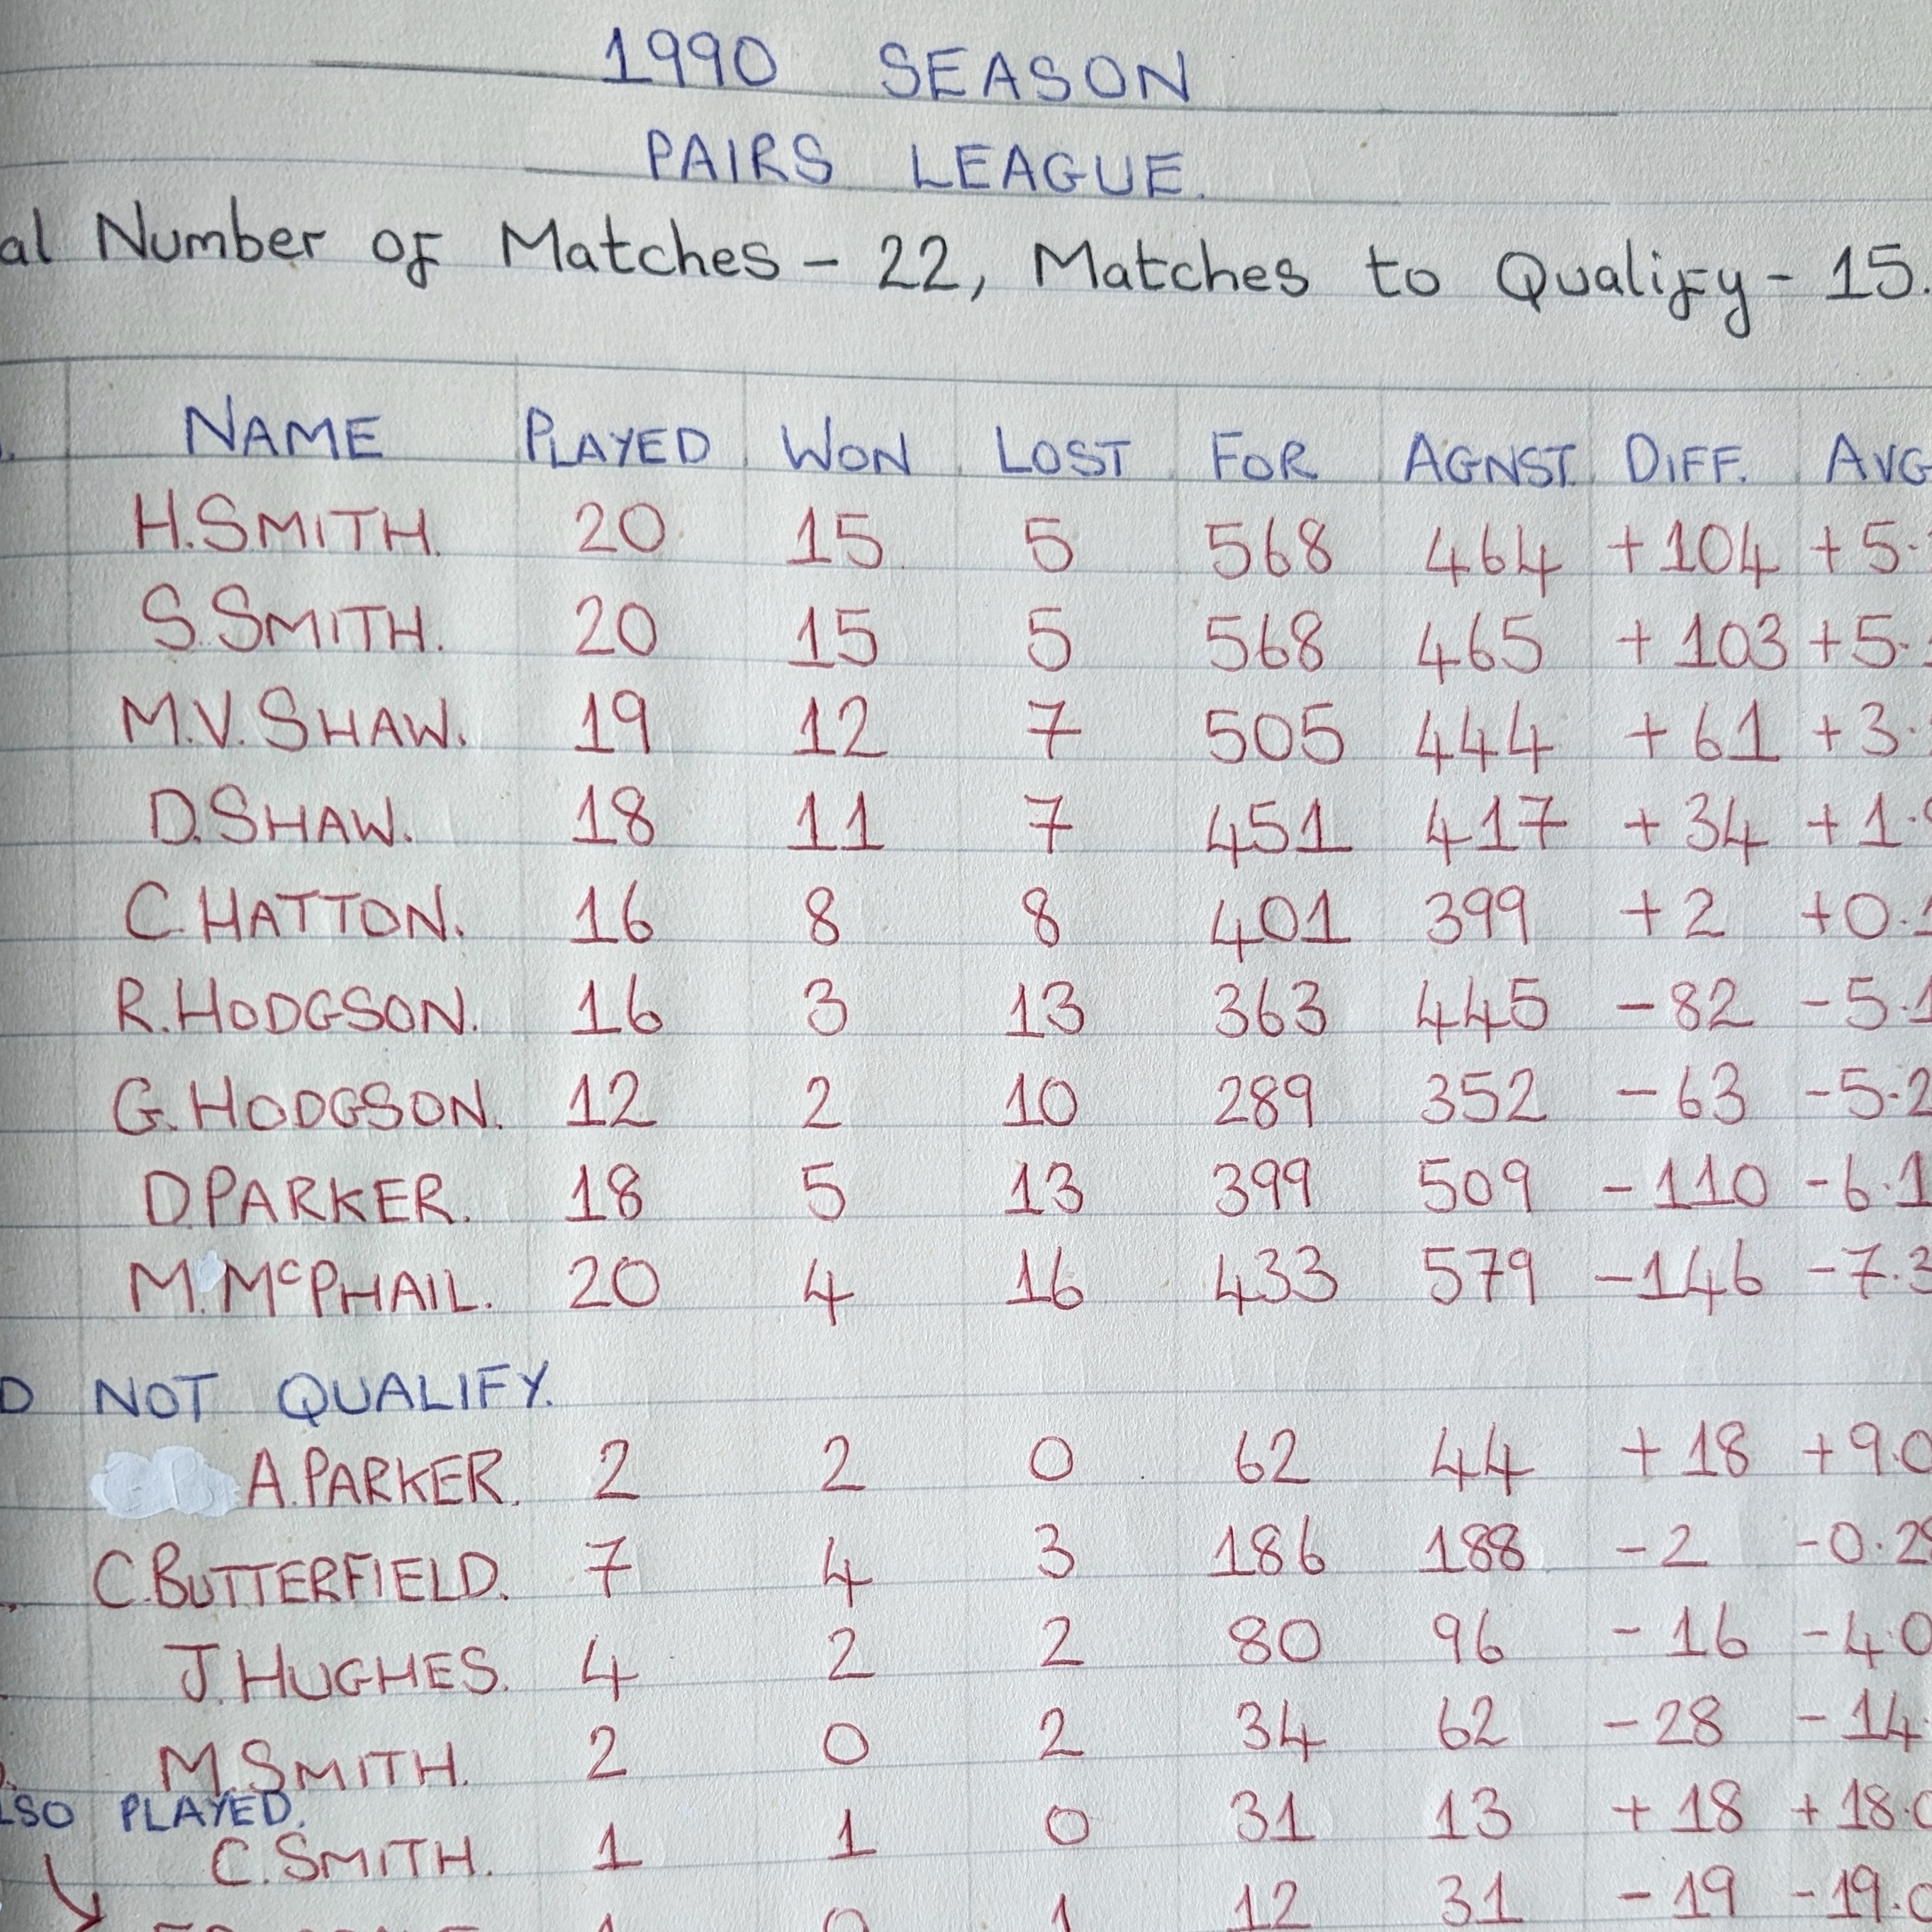 1990 SEASON
PAIRS LEAGUE.
al Number of Matches - 22, Matches to Qualify - 15.
NAME PLAYED WON LOST FOR AGNST. DIFF. AVG
H.SMITH. 20 15 5 568 464 +104 +5.
S.SMITH. 20 15 5 568 465 +103 +5.
M.V.SHAW. 19 12 7 505 444 +61 +3.
D.SHAW. 18 11 7 451 417 +34 +1.
C.HATTON. 16 8 8 401 399 +2 +0.1
R.HODGSON. 16 3 13 363 445 -82 -5.1
G.HODGSON. 12 2 10 289 352 -63 -5.2
D.PARKER. 18 5 13 399 509 -110 -6.1
M.McPHAIL. 20 4 16 433 579 -146 -7.3
D NOT QUALIFY.
A.PARKER. 2 2 0 62 44 +18 +9.0
C.BUTTERFIELD. 7 4 3 186 188 -2 -0.28
J.HUGHES. 4 2 2 80 96 -16 -4.0
M.SMITH. 2 0 2 34 62 -28 -14.
LSO PLAYED.
C.SMITH. 1 1 0 31 13 +18 +18.0
1 0 1 12 31 -19 -19.0